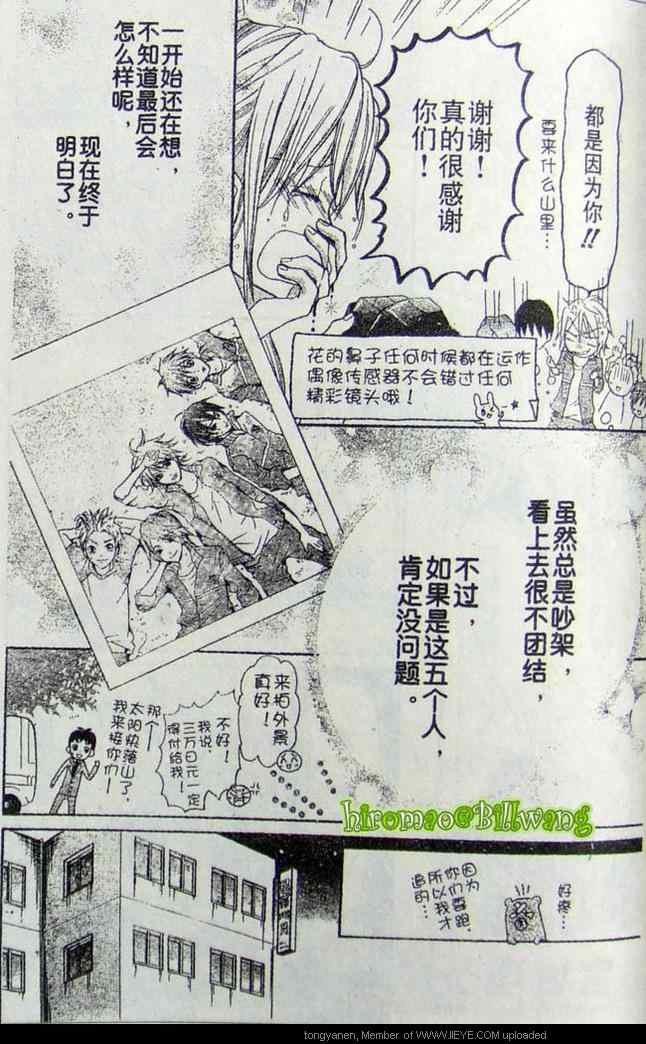 都是因为你!!
要来什么山里…
谢谢!
真的很感谢
你们!
一开始还在想，
不知道最后会
怎么样呢，
现在终于
明白了。
花的鼻子任何时候都在运作
偶像传感器不会错过任何
精彩镜头哦！
虽然总是吵架，
看上去很不团结，
不过，
如果是这五个人，
肯定没问题。
来拍外景
真好！
不好！
我说，
三万日元一定
得付给我！
那个——
太阳快落山了，
我来接你们——
hiromao@Billwang
好疼…
因为
你们要跑，
所以我才
追的…
tongyanen, Member of WWW.IIEYE.COM uploaded